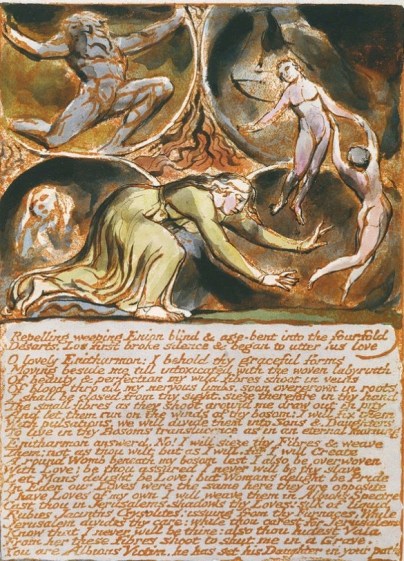 Repelling weeping Enion blind & age-bent into the fourfold
Desarts. Los first broke silence & began to utter his love
O lovely Enitharmon: I behold thy graceful forms
Moving beside me till intoxicated with the woven labyrinth
Of beauty & perfection my wild fibres shoot in veins
Of blood thro all my nervous limbs. soon overgrown in roots
I shall be closed from thy sight. sieze therefore in thy hand
The small fibres as they shoot around me draw out in pity
And let them run on the winds of thy bosom: I will fix them
With pulsations. we will divide them into Sons & Daughters
To live in thy Bosoms translucence as in an eternal morning
Enitharmon answerd. No! I will sieze thy Fibres & weave
Them: not as thou wilt but as I will, for I will Create
A round Womb beneath my bosom lest I also be overwoven
With Love; be thou assured I never will be thy slave
Let Mans delight be Love; but Womans delight be Pride
In Eden our Loves were the same here they are opposite
I have Loves of my own I will weave them in Albions Spectre
Cast thou in Jerusalems shadows thy Loves! silk of liquid
Rubies Jacinths Crysolites: issuing from thy Furnaces. While
Jerusalem divides thy care: while thou carest for Jerusalem
Know that I never will be thine: also thou hidest Vala
From her these fibres shoot to shut me in a Grave.
You are Albions Victim, he has set his Daughter in your path